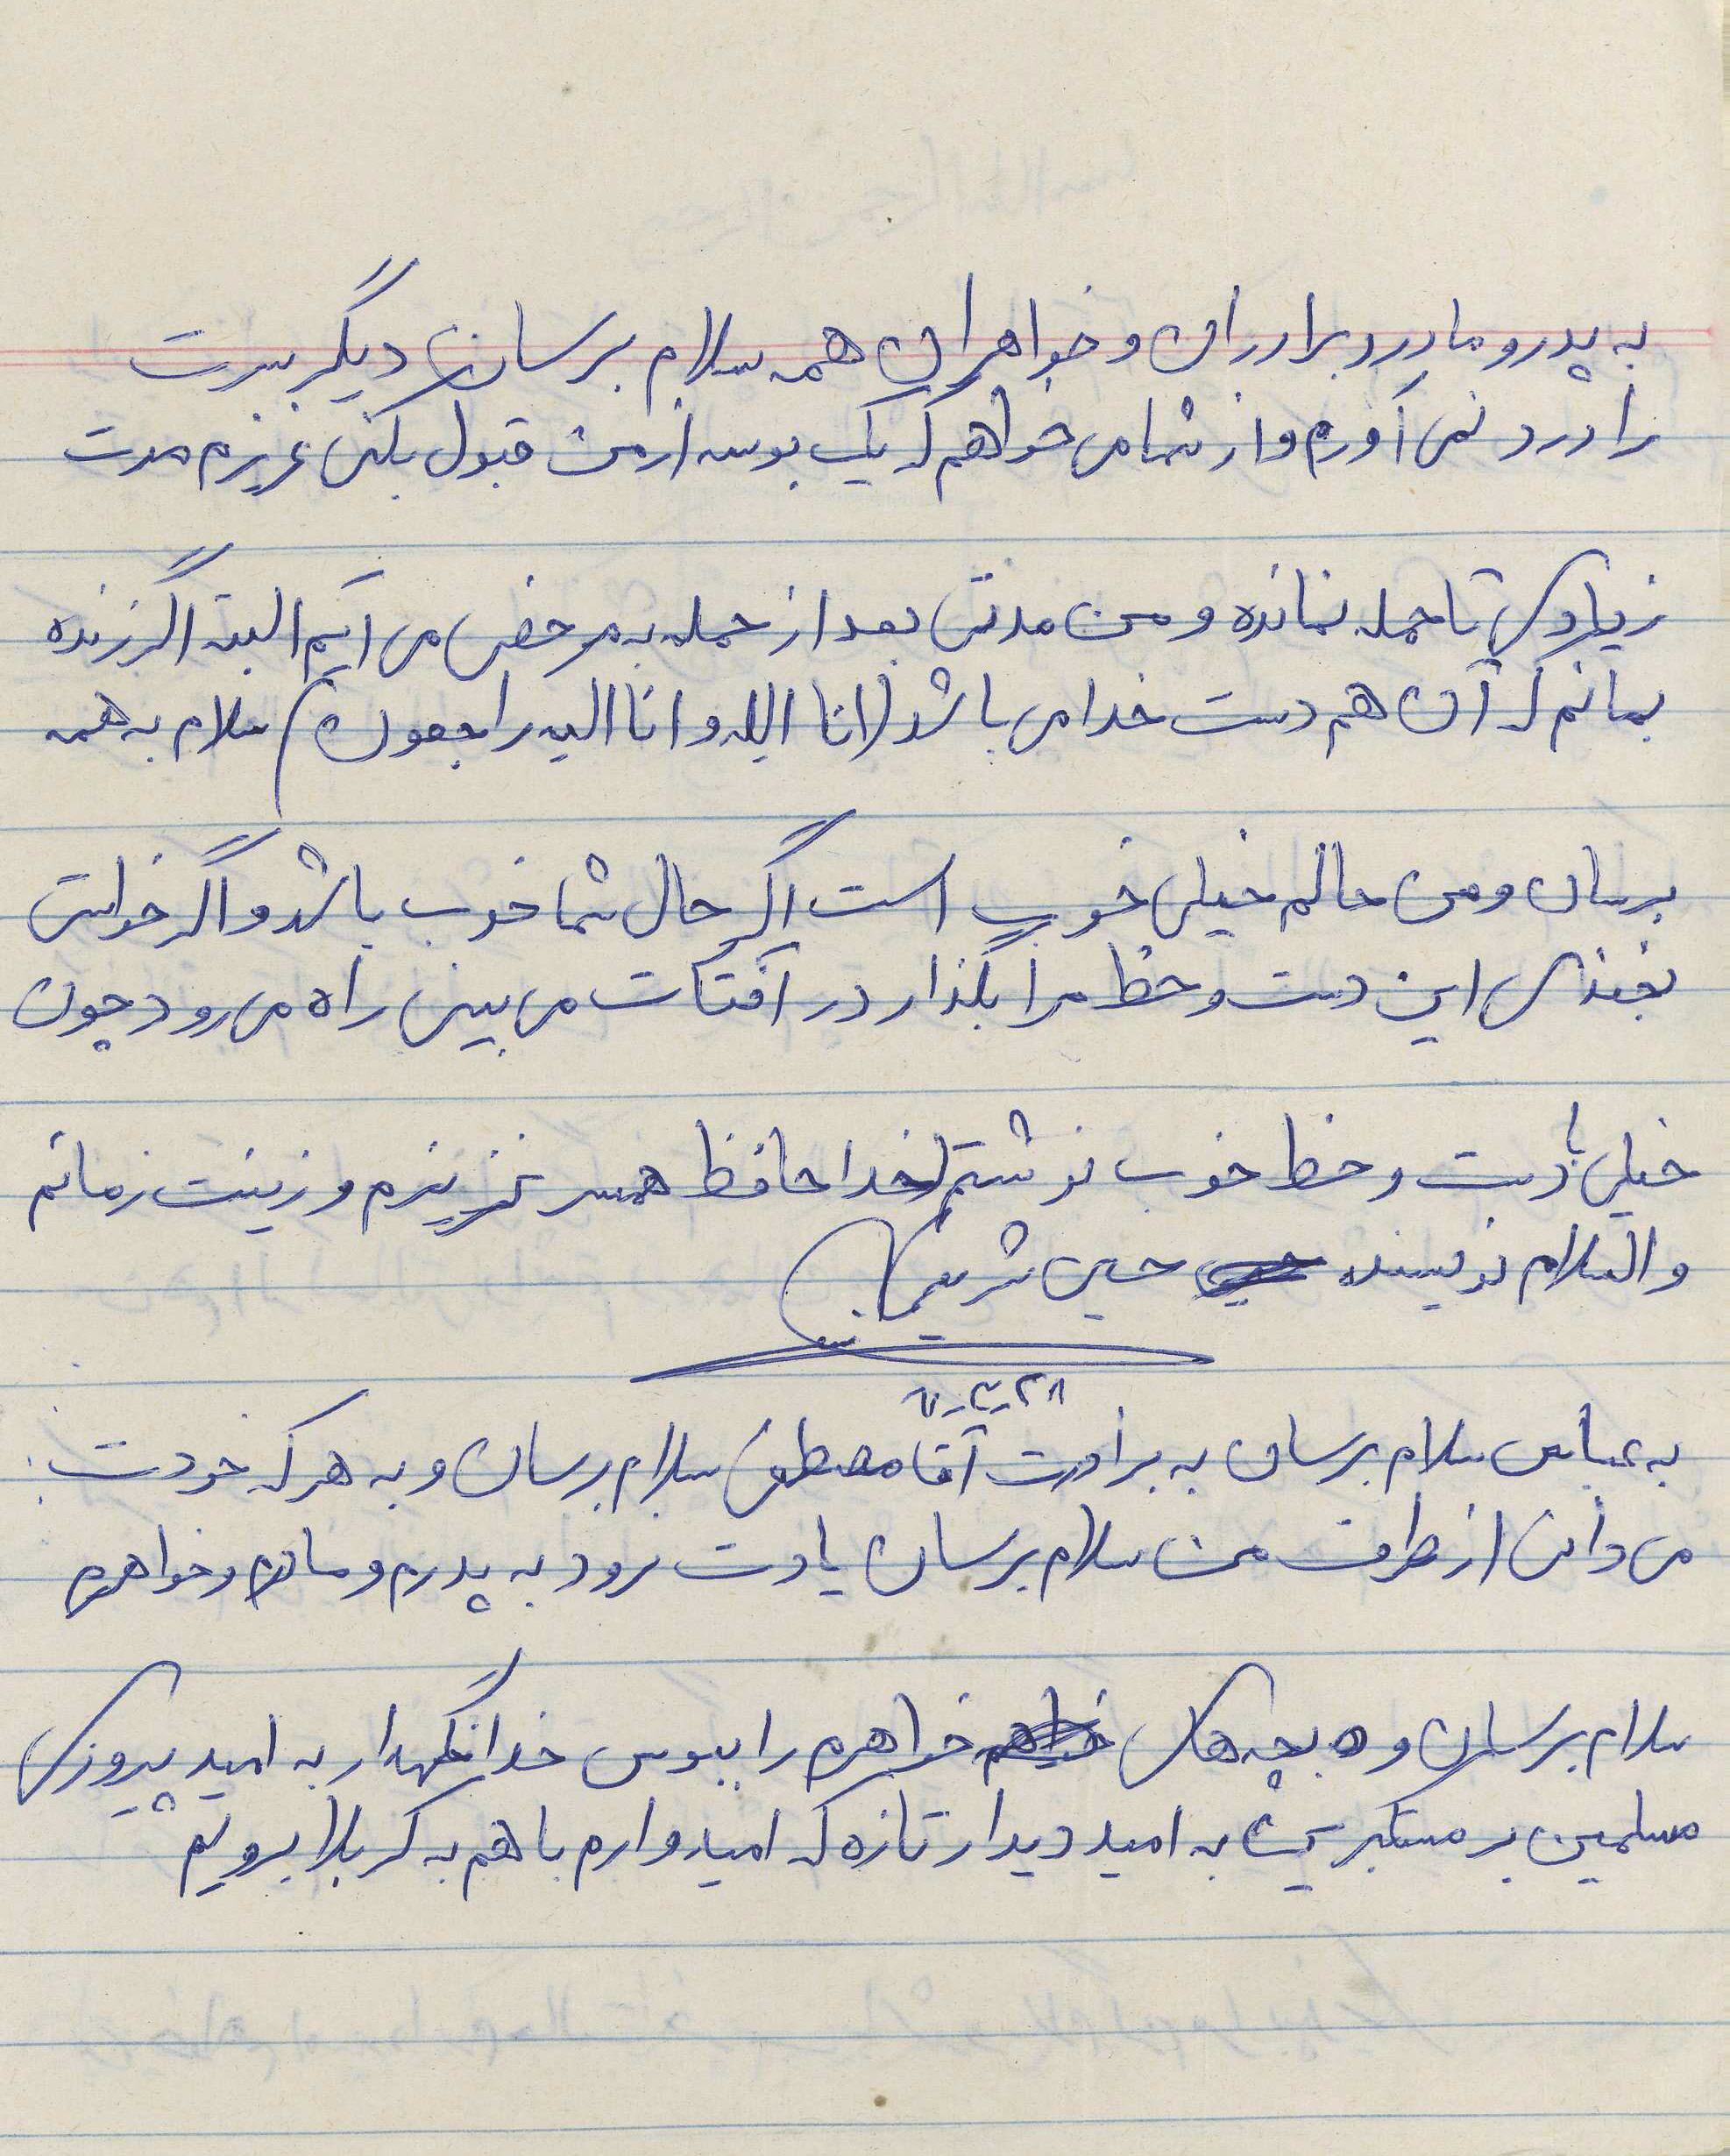 به پدر و مادر و برادران و خواهران همه سلام برسان دیگر سرت
را درد نمی آورم و از شما می خواهم که یک بوسه از من قبول بکنی عزیزم مدت
زیادی تا حمله نمانده و من مدتی بعد از حمله به مرخصی می آیم البته اگر زنده
بمانم که آن هم دست خدا می باشد (انا الله و انا الیه راجعون) سلام به همه
برسان و من حالم خیلی خوب است اگر حال شما خوب باشد و اگر خواستی
بخندی این دست و خط مرا بگذار در آفتاب می بینی راه می رود چون
خیلی با دست و خط خوب نوشتم خدا حافظ همسر عزیزم و زینت زمانم
والسلام نویسنده حسین شریفیان
۶۱-۳-۲۸
به عباس سلام برسان به برادرت آقا مصطفی سلام برسان و به هر که خودت
می دانی از طرف من سلام برسان یادت نرود به پدرم و مادرم و خواهرم
سلام برسان و بچه های خواهرم را ببوس خدا نگهدار به امید پیروزی
مسلمین بر مستکبرین به امید دیدار تازه که امیدوارم با هم به کربلا برویم